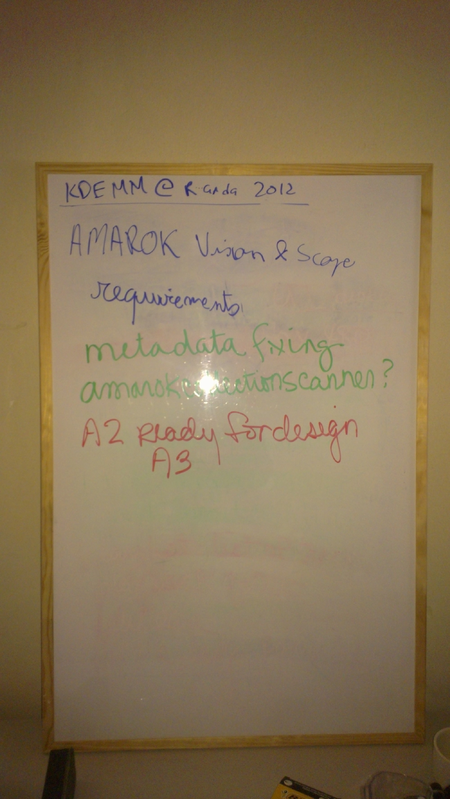 KDEMM @ Randa 2012
AMAROK Vision & Scope
requirements
metadata fixing
amarokcollectionscanner?
A2 ready for design
A3